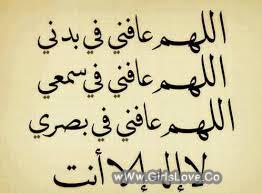 اللهم عافني في بدني
اللهم عافني في سمعي
اللهم عافني في بصري
لا إله إلا أنت
WwW.GirlsLove.Co